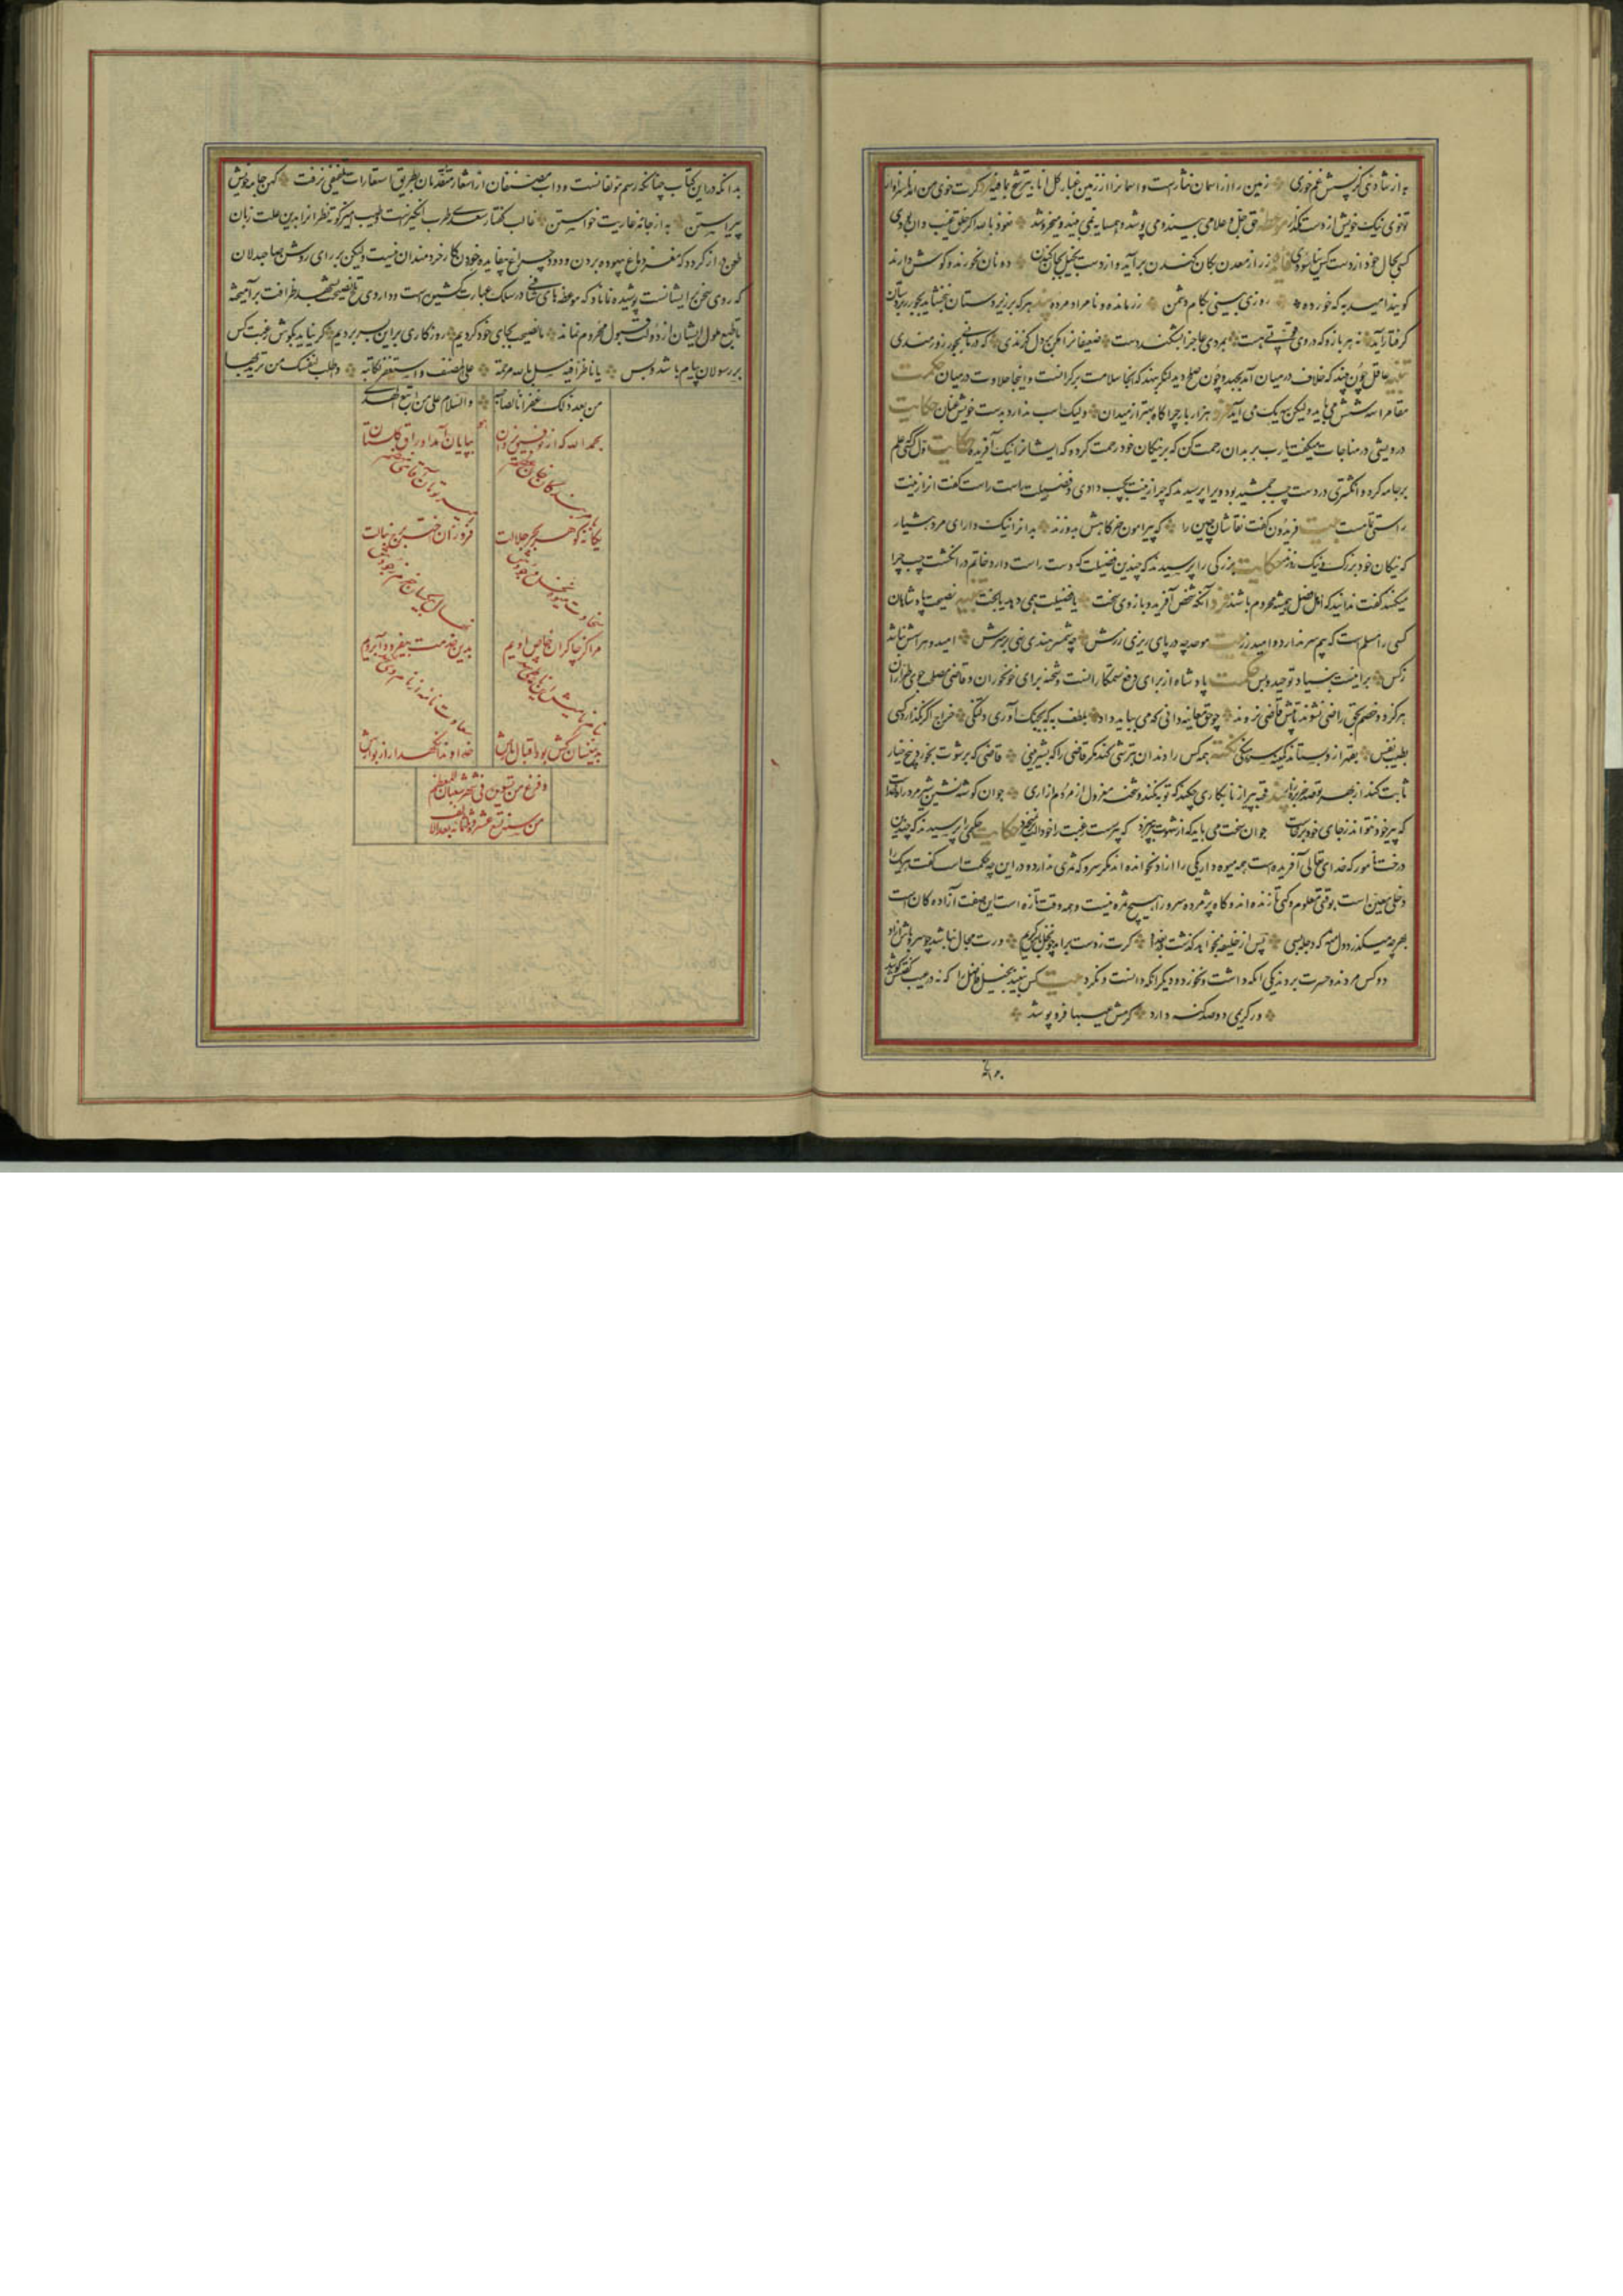 به از شادی کز پسش غم خوری زمین را از اسمان نثارست و اسمانرا از زمین غبار کل اناء یترشح بما فیه فرد کرت خوی من امد ناسزاوار
تو خوی نیک خویش از دست مگذار موعظه حق جل و علا می بیند و می پوشد و همسایه نمی بیند و میخروشد نعوذ بالله اکر خلق غیب دان بودی
کسی بحال خود از دست کس نیاسودی زر از معدن بکان کندن برآید و از دست بخیل بجان کندن دونان نخورند و گوش دارند
کویند امید به که خورده روزی بینی بکام دشمن زر مانده و نامرد مرده پند هر که بر زیردستان نبخشاید بجور زبردستان
گرفتار آید نه هر بازو که در وی قوتی هست بمردی عاجزانرا بشکند دست ضعیفانرا مکن بر دل گزندی که درمانی بجور زورمندی
تنبیه عاقل چون بیند که خلاف در میان آمد بجهد و چون صلح دید لنگر بنهد که آنجا سلامت بر کرانست و اینجا حلاوت در میان حکمت
مقامر را سه شش می باید و لیکن سه یک می آید فرد هزار بار چراگاه بهتر از میدان ولیک اسب ندارد بدست خویش عنان حکایت
درویشی در مناجات میگفت یارب بر بدان رحمت کن که بر نیکان خود رحمت کرده که ایشانرا نیک آفریده حکایت اول کسی که علم
بر جامه کرد و انگشتری در دست چپ جمشید بود ویرا پرسیدند که چرا زینت بچپ دادی و فضیلت راست راست گفت انرا زینت
راستی تمامست بیت فریدون گفت نقاشان چین را که پیرامون خرگاهش بدوزند بدانرا نیک دار ای مرد هشیار
که نیکان خود بزرگ و نیک روزند حکایت بزرگی را پرسیدند که چندین فضیلت که دست راست دارد خاتم در انگشت چپ چرا
میکنند گفت ندانید که اهل فضل همیشه محروم باشند فرد آنکه شخص آفرید و بازوی سخت یا فضیلت همی دهد یا بخت تنبیه نصیحت پادشاهان
کسی را مسلم است که بیم سر ندارد و امید زر بیت موحد چه در پای ریزی زرش چه شمشیر هندی نهی بر سرش امید و هراسش نباشد
ز کس برانیست بنیاد توحید و بس حکمت پادشاه از برای دفع ستمکارانست و شحنه برای خونخوران و قاضی مصلحت جوی طراران
هرگز دو خصم بحق راضی نشوند تا پیش قاضی نروند چو حق معاینه دانی که می بباید داد بلطف به که بجنگ آوری و دلتنگی خراج اگر نگذارد کسی
بطیب نفس بقهر از و بستانند نکته همه کس را دندان بترشی کند مگر قاضی را که بشیرینی قاضی که برشوت بخورد پنج خیار
ثابت کند از بهر تو صد خربزه زار پند قحبه پیر از نابکاری چکند که توبه نکند و شحنه معزول از مردم ازاری جوان گوشه نشین شیر مرد راه خداست
که پیر خود نتواند ز جای خود برخاست جوان سخت می باید که از شهوت بپرهیزد که پیر سست رغبت را خود حکایت حکیمی را پرسیدند که چندین
درخت نامور که خدای تعالی آفریده است همه میوه دار یکی را ازاد نخوانده اند مگر سرو که ثمری ندارد درین چه حکمت است گفت هر یکی را
دخلی معین است بوقتی معلوم و گهی تازنده اند و گاه پژمرده سرو را هیچ ثمره نیست و همه وقت تازه است این صفت آزادگان است
بهرچه میگذرد دل منه که دجله بسی پس از خلیفه بخواهد گذشت در بغداد گرت ز دست براید چو نخل باش کریم ورت مجال نباشد چو سرو باش ازاد
دو کس مردند و حسرت بردند یکی انکه داشت و نخورد و دیگر انکه دانست و نکرد بیت کس نبیند بخیل فاضل را که نه در عیب گفتنش کوشد
ور کریمی دو صد گنه دارد کرمش عیبها فرو پوشد
بدانکه در این کتاب چنانکه رسم مولفانست و داب مصنفان از اشعار متقدمان بطریق استعارات تلفیقی نرفت کهن جامه خویش
پیراستن به از جامه عاریت خواستن غالب گفتار سعدی طرب انگیز است و طیب امیز کوته نظرانرا بدین علت زبان
طعن دراز گردد که مغز دماغ بیهوده بردن و دود چراغ بیفایده خوردن کار خردمندان نیست ولیکن بر رای روشن صاحبدلان
که روی سخن ایشانست پوشیده نماند که موعظه های شافی در سلک عبارت کشیده است و داروی تلخ نصیحت بشهد ظرافت برآمیخته
تا طبع ملول ایشان از دولت قبول محروم نماند ما نصیحت بجای خود کردیم روزگاری براین بسر بردیم گر نیاید بگوش رغبت کس
بر رسولان پیام باشد و بس یا ناظرا فیه سل بالله مرحمة علی المصنف و استغفر لکاتبه واطلب لنفسک من خیر ترید بها
من بعد ذلک غفرانا لصاحبه والسلام علی من اتبع الهدی
بحمد الله که از توفیق یزدان بپایان آمد اوراق گلستان
یگانه گوهر بحر جلالت فروزان اختر برج
مرا کز چاکران خاص اویم بدین خدمت بیفزود آبرویم